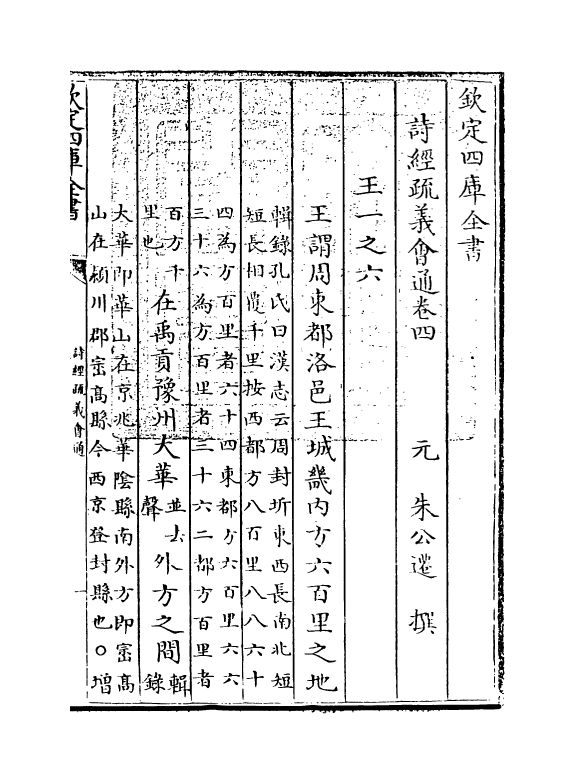 欽定四庫全書
詩經疏義會通卷四
元　朱公遷　撰
王一之六
王謂周東都洛邑王城畿内方六百里之地
輯錄孔氏曰漢志云周封圻東西長南北短
短長相覆千里按西都方八百里八八六十
四為方百里者六十四東都方六百里六六
三十六為方百里者三十六二都方百里者
百方千
里也
在禹貢豫州大華
並去
聲
外方之間
輯
錄
大華即華山在京兆華陰縣南外方即嵩高
山在潁川郡崈高縣今西京登封縣也○增
欽定四庫全書
詩經疏義會通
一